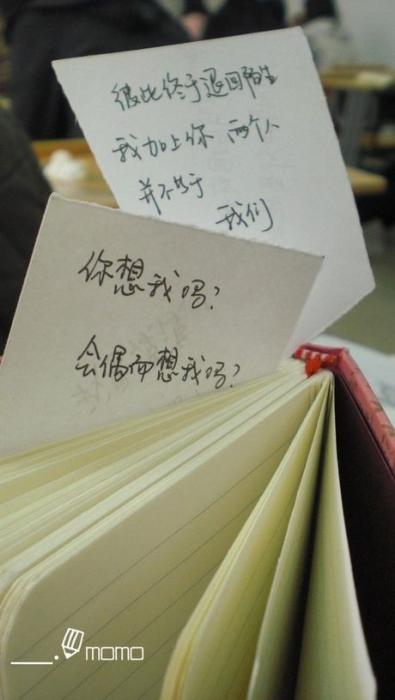 彼比终于退回陌生
我加上你 两个人
并不等于
我们
你想我吗?
会偶而想我吗?
momo